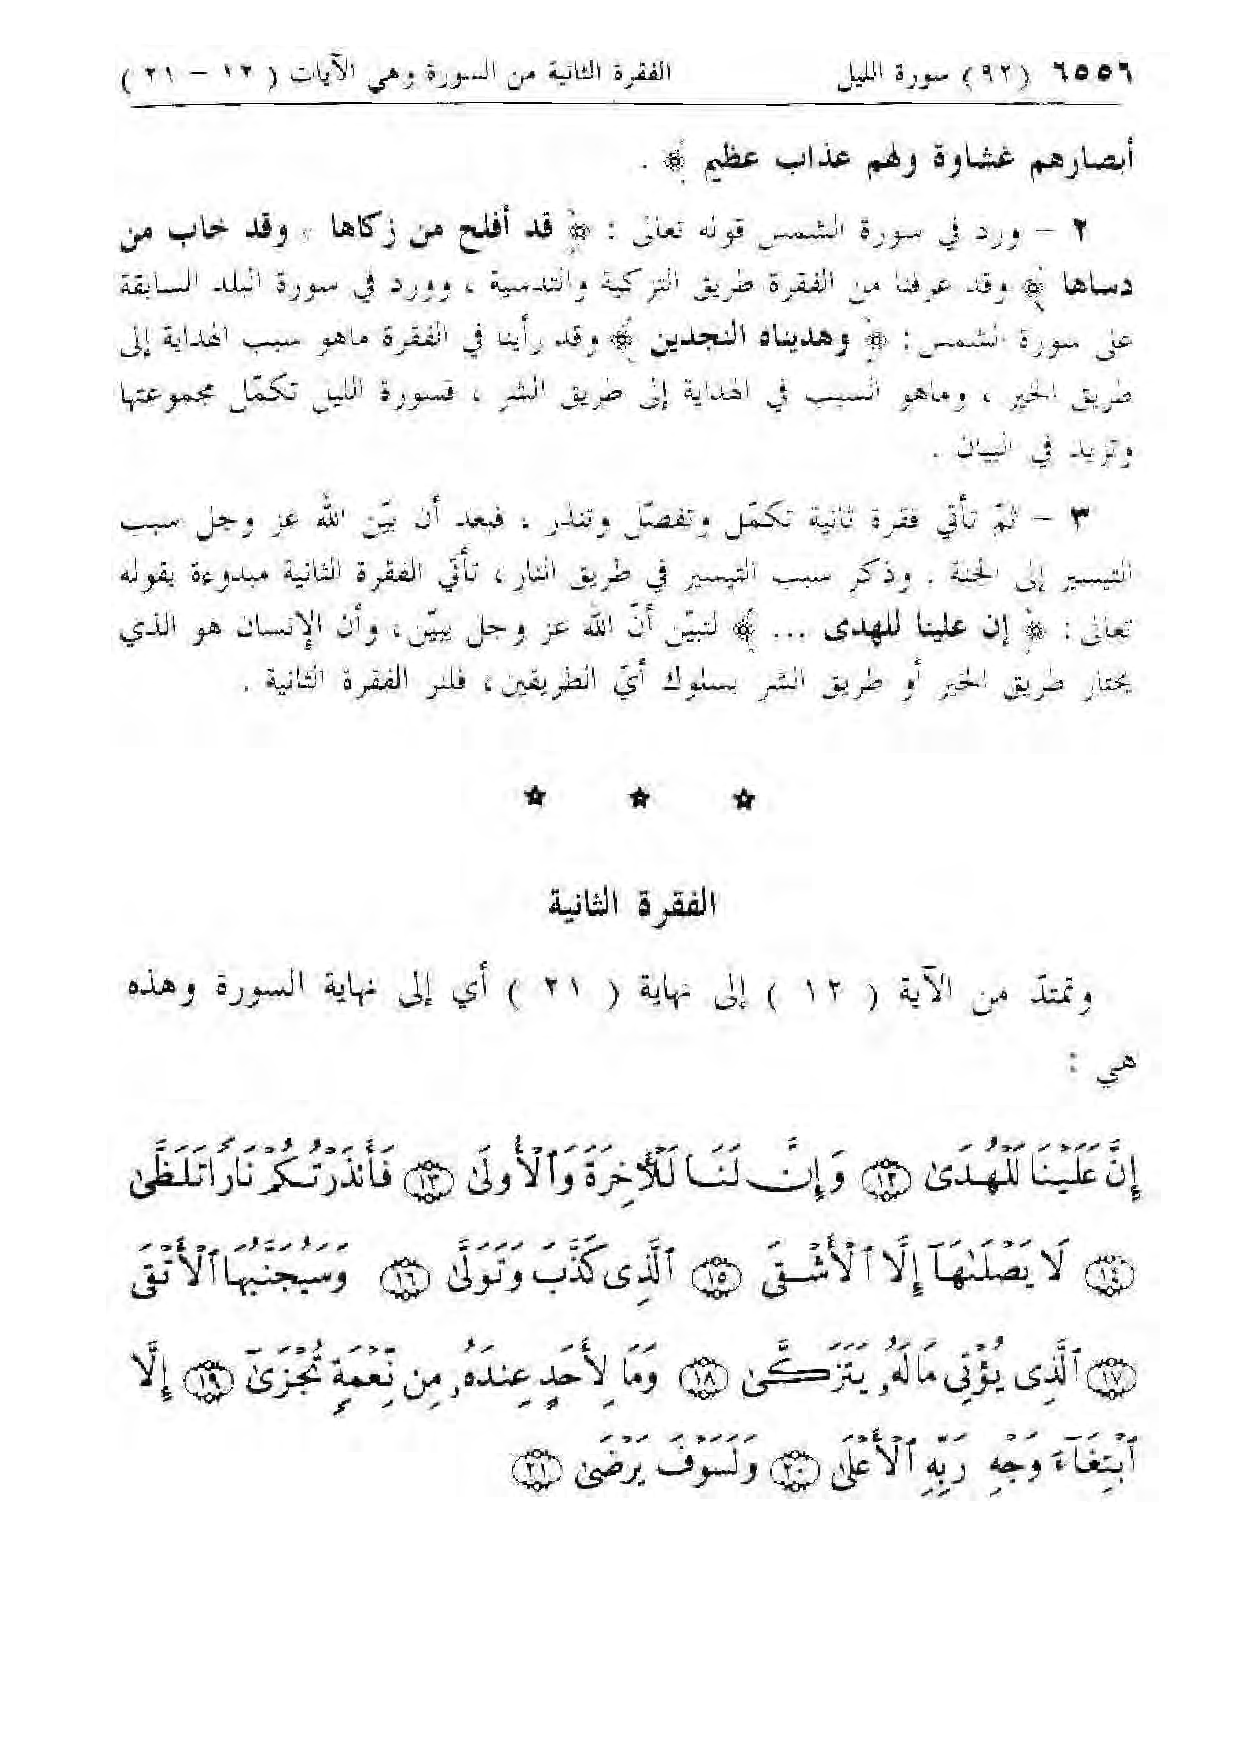 ٦٥٥٦ (٩٢) سورة الليل الفقرة الثانية من السورة وهي الآيات ( ١٢ – ٢١ )
أبصارهم غشاوة ولهم عذاب عظيم ﴾ .
٢ – ورد في سورة الشمس قوله تعالى : ﴿ قد أفلح من زكاها ، وقد خاب من
دساها ﴾ وقد عرفنا من الفقرة طريق التزكية والتدسية ، وورد في سورة البلد السابقة
على سورة الشمس : ﴿ وهديناه النجدين ﴾ وقد رأينا في الفقرة ماهو سبب الهداية إلى
طريق الخير ، وماهو السبب في الهداية إلى طريق الشر ، فسورة الليل تكمّل مجموعتها
وتزيد في البيان .
٣ – ثمّ تأتي فقرة ثانية تكمّل وتفصّل وتنذر ، فبعد أن بيّن الله عز وجل سبب
التيسير إلى الجنة . وذكر سبب التيسير في طريق النار ، تأتي الفقرة الثانية مبدوءة بقوله
تعالى : ﴿ إن علينا للهدى ... ﴾ لتبيّن أنّ الله عز وجل يبيّن ، وأن الإنسان هو الذي
يختار طريق الخير أو طريق الشر بسلوك أيّ الطريقين ، فلنر الفقرة الثانية .
★ ★ ★
الفقرة الثانية
وتمتدّ من الآية ( ١٢ ) إلى نهاية ( ٢١ ) أي إلى نهاية السورة وهذه
هي :
إِنَّ عَلَيْنَا لَلْهُدَىٰ ⁠(١٢) وَإِنَّ لَنَا لَلْأٓخِرَةَ وَٱلْأُولَىٰ (١٣) فَأَنذَرْتُكُمْ نَارًا تَلَظَّىٰ
(١٤) لَا يَصْلَىٰهَآ إِلَّا ٱلْأَشْقَى (١٥) ٱلَّذِى كَذَّبَ وَتَوَلَّىٰ (١٦) وَسَيُجَنَّبُهَا ٱلْأَتْقَى
(١٧) ٱلَّذِى يُؤْتِى مَالَهُۥ يَتَزَكَّىٰ (١٨) وَمَا لِأَحَدٍ عِندَهُۥ مِن نِّعْمَةٍ تُجْزَىٰٓ (١٩) إِلَّا
ٱبْتِغَآءَ وَجْهِ رَبِّهِ ٱلْأَعْلَىٰ (٢٠) وَلَسَوْفَ يَرْضَىٰ (٢١)